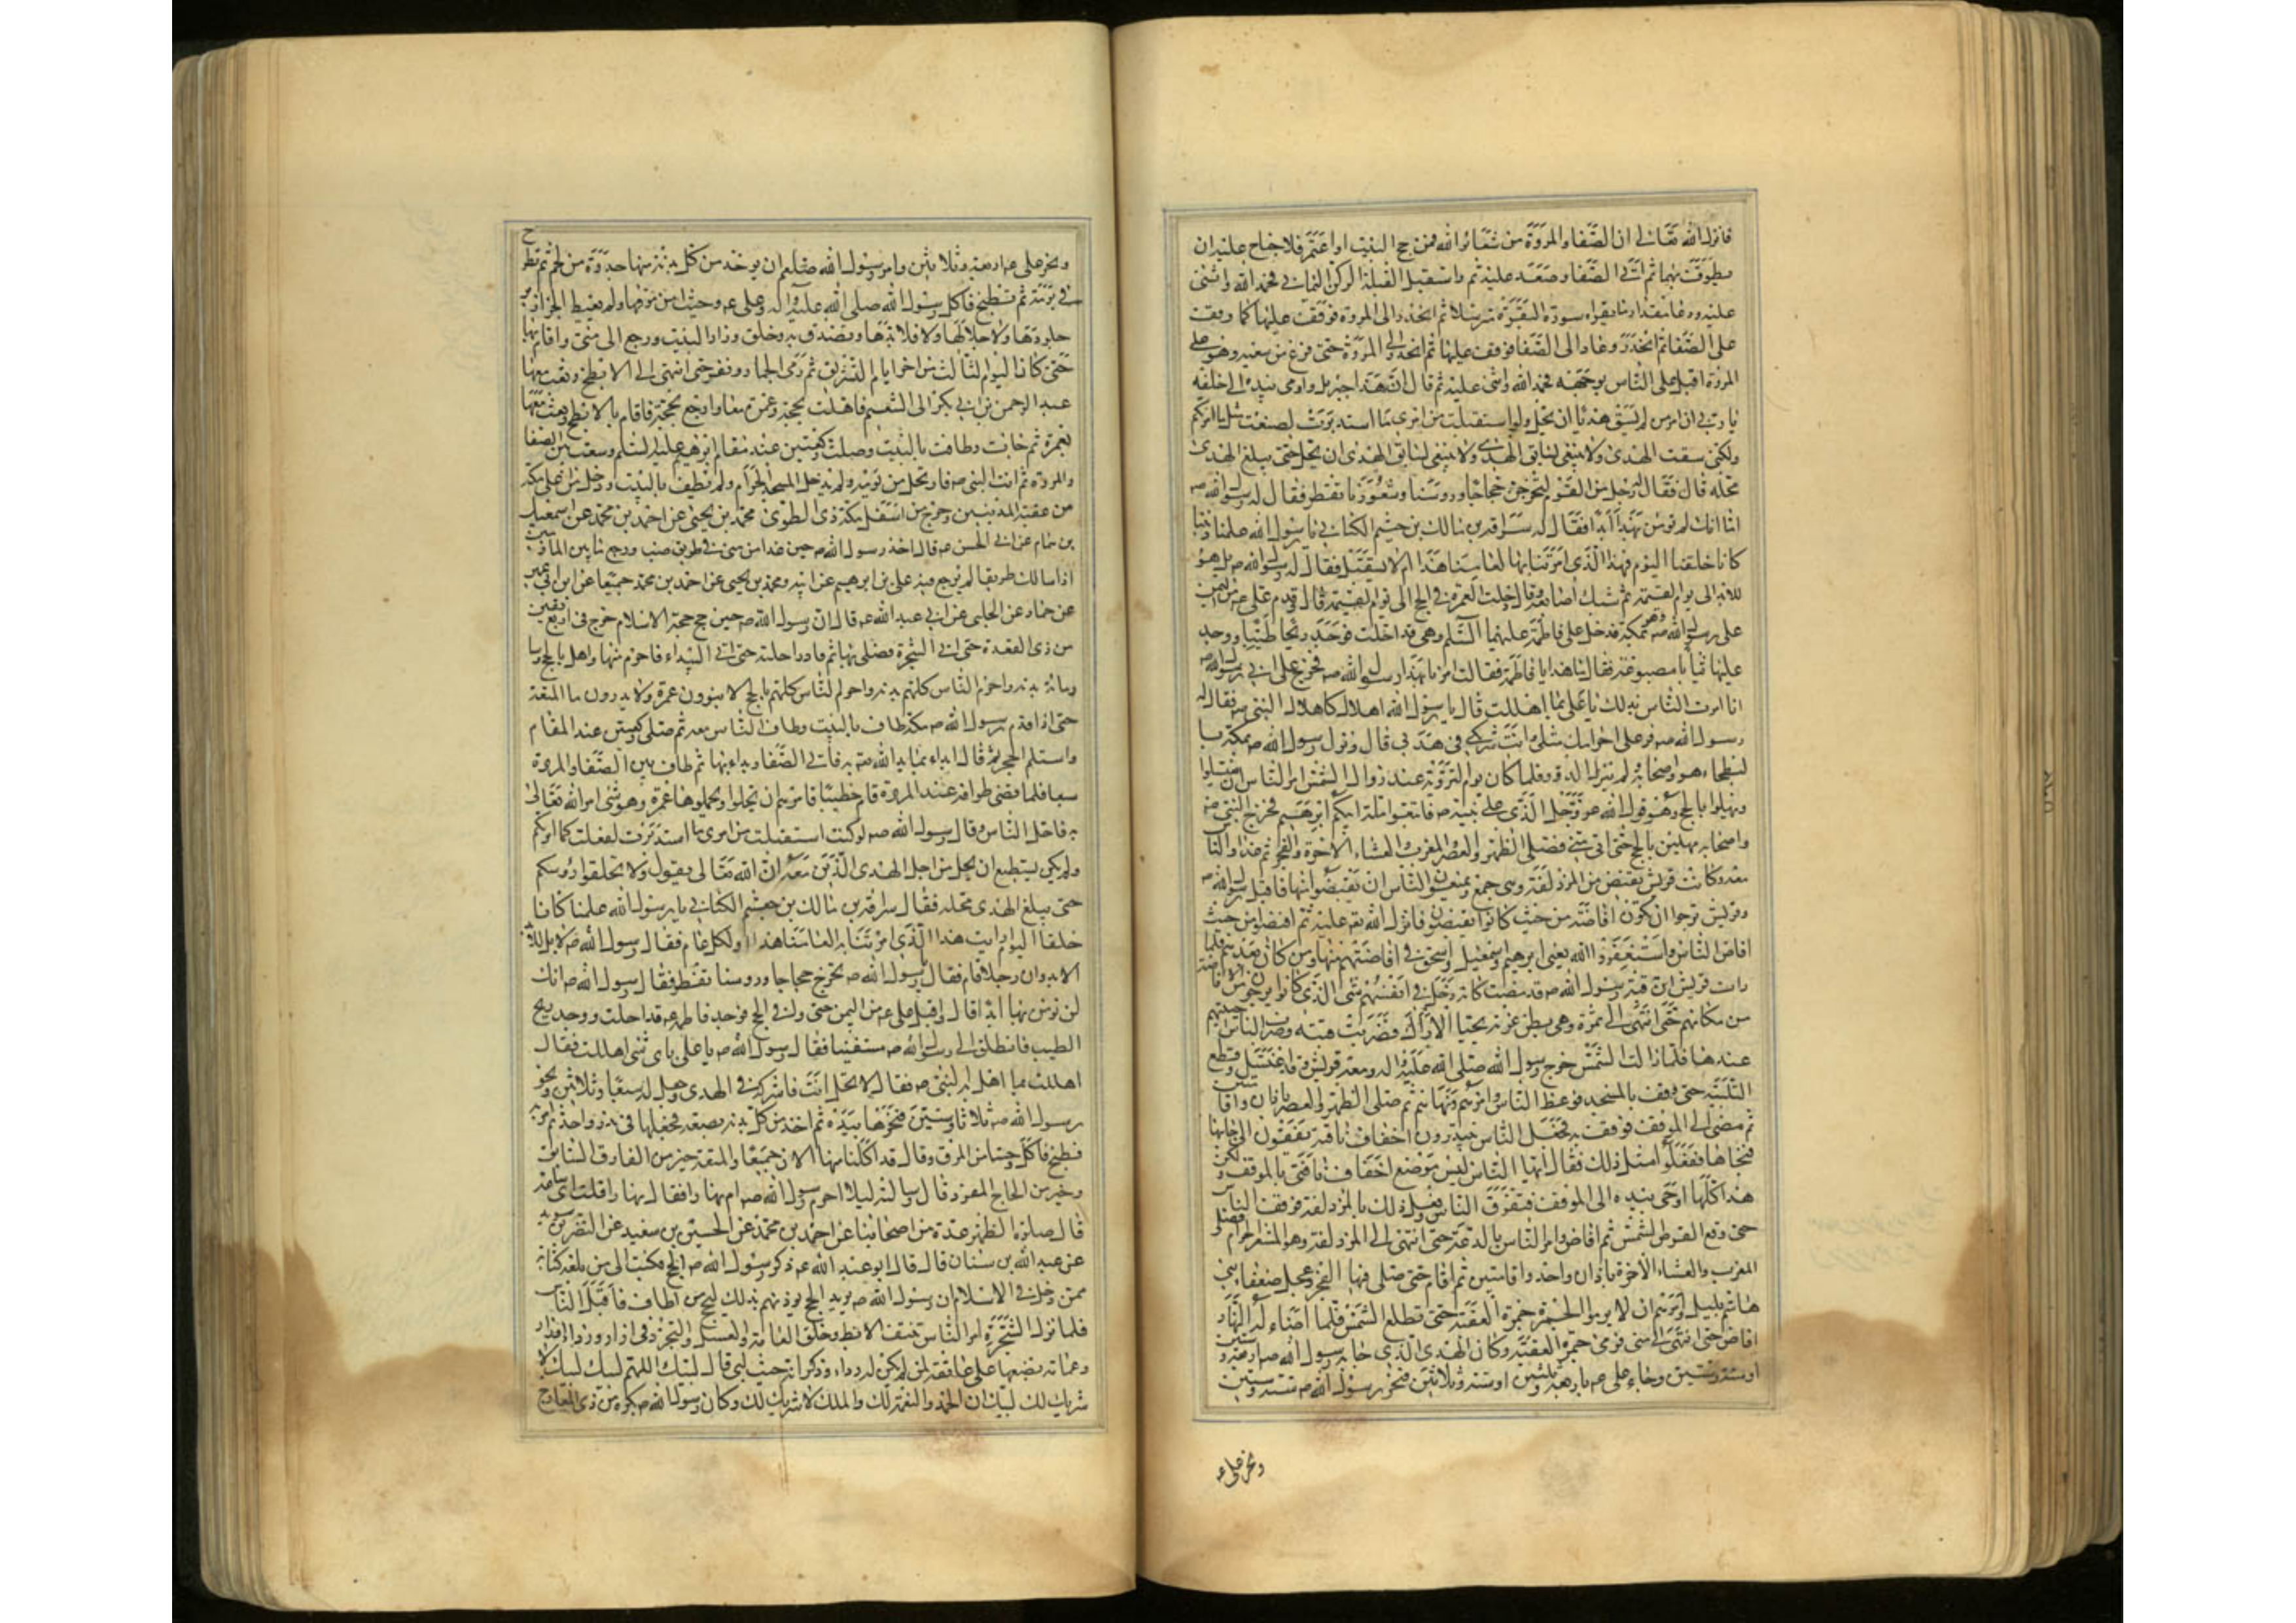 فانزل الله تعالى ان الصفا والمروة من شعائر الله فمن حج البيت او اعتمر فلا جناح عليه ان
يطوف بهما ثم اتى الصفا وصعد عليه ثم واستقبل القبلة الركن اليماني فحمد الله واثنى
عليه ودعا مقدار ما يقرا سورة البقرة مترسلا ثم انحدر الى المروة فوقف عليها كما وقف
على الصفا ثم انحدر وعاد الى الصفا فوقف عليها ثم انحدر الى المروة حتى فرغ من سعيه وهو على
المروة اقبل على الناس بوجهه فحمد الله واثنى عليه ثم قال ان هذا جبريل واومى بيده الى خلفه
يامرني ان امر من لم يسق هديا ان يحل ولو استقبلت من امري ما استدبرت لصنعت مثل ما امرتكم
ولكني سقت الهدى ولا ينبغي لسايق الهدى ولا ينبغي لسايق الهدى ان يحل حتى يبلغ الهدى
محله قال فقال رجل من القوم لنخرجن حجاجا وروسنا وشعورنا تقطر فقال له رسول الله ص
اما انك لم تومن بهذا ابدا فقال له سراقة بن مالك بن جشم الكناني يا رسول الله علمنا ديننا
كانا خلقنا اليوم فهذا الذي امرتنا به لعامنا هذا ام لا يستقبل فقال له رسول الله ص بل هو
للابد الى يوم القيمة ثم شبك اصابعه وقال دخلت العمرة في الحج الى يوم القيمة قال وقدم علي ع من اليمن
على رسول الله ص وهو بمكة فدخل على فاطمة عليهما السلم وهي قد احلت فوجد ريحا طيبا ووجد
عليها ثيابا مصبوغة فقال ما هذا يا فاطمة فقالت امرنا بهذا رسول الله ص فخرج علي الى رسول الله ص
انا امرت الناس بذلك يا علي بما اهللت قال يا رسول الله اهلالا كاهلال النبي ص فقال له
رسول الله ص قر على احرامك مثلي وانت شريكي في هديي قال ونزل رسول الله ص بمكة با
لبطحاء هو واصحابه ولم ينزل الدور فلما كان يوم التروية عند زوال الشمس امر الناس ان يغتسلوا
ويهلوا بالحج وهو قول الله عز وجل الذي على نبيه ص فاتبعوا ملة ابيكم ابرهيم فخرج النبي ص
واصحابه مهلين بالحج حتى اتى منى فصلى الظهر والعصر والمغرب والعشاء الاخرة والفجر ثم غدا والناس
معه وكانت قريش تفيض من المزدلفة وهي جمع ويمنعون الناس ان يفيضوا منها فاقبل رسول الله ص
وقريش ترجوا ان تكون افاضته من حيث كانوا يفيضون فانزل الله تع عليه ثم افيضوا من حيث
افاض الناس واستغفروا الله يعني ابرهيم واسمعيل واسحق في افاضتهم منها ومن كان بعدهم فلما
رات قريش ان قبة رسول الله ص قد مضت كانه دخل في انفسهم شيء الذي كانوا يرجون من الافاضة
من مكانهم حتى انتهى الى نمرة وهي بطن عرنة بحيال الاراك فضربت قبته وضرب الناس اخبيتهم
عندها فلما زالت الشمس خرج رسول الله صلى الله عليه واله ومعه قريش وقد اغتسل وقطع
التلبية حتى وقف بالمسجد فوعظ الناس وامرهم ونهاهم ثم صلى الظهر والعصر باذان واقامتين
ثم مضى الى الموقف فوقف به فجعل الناس يبتدرون اخفاف ناقته يقفون الى جانبها
فنحاها ففعلوا مثل ذلك فقال ايها الناس ليس موضع اخفاف ناقتي بالموقف ولكن
هذا كلها اومى بيده الى الموقف فتفرق الناس وفعل ذلك بالمزدلفة فوقف الناس
حتى وقع القرص الشمس ثم افاض وامر الناس بالدعة حتى انتهى الى المزدلفة وهو المشعر الحرام فصلى
المغرب والعشاء الاخرة باذان واحد واقامتين ثم اقام حتى صلى فيها الفجر وعجل ضعفاء بني
هاشم بليل وامرهم ان لا يرموا الجمرة جمرة العقبة حتى تطلع الشمس فلما اضاء له النهار
افاض حتى انتهى الى منى فرمى جمرة العقبة وكان الهدى الذي جاء به رسول الله ص اربعة وستين
او ستة وستين وجاء علي ع باربعة وثلثين او ستة وثلاثين فنحر رسول الله ص ستة وستين
ونحر علي ع
ونحر علي ع اربعة وثلاثين وامر رسول الله صلعم ان يوخذ من كل بدنة منها جذوة من لحم ثم تطرح
في برمة ثم تطبخ فاكل رسول الله صلى الله عليه واله وعلي ع وحسيا من مرقها ولم يعيط الجزارين
جلودها ولا جلالها ولا قلائدها وتصدق به وحلق وزار البيت ورجع الى منى واقام بها
حتى كان اليوم الثالث من اخر ايام التشريق ثم رمى الجمار ونفر حتى انتهى الى الابطح وبعث معها
عبد الرحمن بن ابي بكر الى التنعيم فاهلت بحجة وعمرة معا وارجع بحجة فاقام بالابطح وبعث معها
بعمرة ثم جاءت وطافت بالبيت وصلت ركعتين عند مقام ابرهيم عليه السلم وسعت بين الصفا
والمروة ثم اتت النبي ص فارتحل من يومه ولم يدخل المسجد الحرام ولم يطف بالبيت ودخل من اعلى مكة
من عقبة المدنيين وخرج من اسفل مكة ذي الطوى محمد بن يحيى عن احمد بن محمد عن اسمعيل
بن همام عن ابي الحسن ع قال اخذ رسول الله ص حين غدا من منى في طريق ضب ورجع ما بين المازمين
اذا سالك طريقا لم يرجع فيه علي بن ابرهيم عن ابيه ومحمد بن يحيى عن احمد بن محمد جميعا عن ابن ابي عمير
عن حماد عن الحلبي عن ابي عبد الله ع قال ان رسول الله ص حين حج حجة الاسلام خرج في اربع بقين
من ذي القعدة حتى اتى الشجرة فصلى بها ثم قاد راحلته حتى اتى البيداء فاحرم منها واهل بالحج وسا
وماة بدنة واحرم الناس كلهم بدنة واحرم الناس كلهم بالحج لا ينوون عمرة ولا يدرون ما المتعة
حتى اذا قدم رسول الله ص مكة طاف بالبيت وطاف الناس معه ثم صلى ركعتين عند المقام
واستلم الحجر ثم قال ابداء بما بدا الله تع به فاتى الصفا وبداء بها ثم طاف بين الصفا والمروة
سبعا فلما قضى طوافه عند المروة قام خطيبا فامرهم ان يحلوا ويجعلوها عمرة وهو شيء امر الله تعالى
به فاحل الناس وقال رسول الله ص لو كنت استقبلت من امري ما استدبرت لفعلت كما امرتكم
ولم يكن يستطيع ان يحل من اجل الهدى الذي معه ان الله تعالى يقول ولا تحلقوا رؤسكم
حتى يبلغ الهدى محله فقال سراقة بن مالك بن جعشم الكناني يا رسول الله علمنا كانا
خلقنا اليوم ارايت هذا الذي امرتنا به العامنا هذا او لكل عام فقال رسول الله ص لا بل للابد
الابد وان رجلا قام فقال يا رسول الله ص نخرج حجاجا وروسنا تقطر فقال رسول الله ص انك
لن تومن بها ابدا قال واقبل علي ع من اليمن حتى وافى الحج فوجد فاطمة ع قد احلت ووجد ريح
الطيب فانطلق الى رسول الله ص مستفتيا فقال رسول الله ص يا علي باي شيء اهللت فقال
اهللت بما اهل به النبي ص فقال لا تحل انت فاشركه في الهدى وجعل له سبعا وثلاثين ونحر
رسول الله ص ثلاثا وستين فنحرها بيده ثم اخذ من كل بدنة بضعة فجعلها في قدر واحد ثم امر به
فطبخ فاكل وحسا من المرق وقال قد اكلنا منها الان جميعا والمتعة خير من القارن السائق
وخير من الحاج المفرد قال وسالته ليلا احرم رسول الله ص ام نهارا فقال نهارا قلت اي ساعة
قال صلوة الظهر عدة من اصحابنا عن احمد بن محمد عن الحسين بن سعيد عن النضر بن سويد
عن عبد الله بن سنان قال قال ابو عبد الله ع ذكر رسول الله ص الحج فكتب الى من بلغه كتابه
ممن دخل في الاسلام ان رسول الله ص يريد الحج يوذنهم بذلك ليحج من اطاق فاقبل الناس
فلما نزل الشجرة امر الناس بنتف الابط وحلق العانة والغسل والتجرد في ازار ورداء او ازار
وعمامة يضعها على عاتقه لمن لم يكن له رداء وذكر انه حيث لبى قال لبيك اللهم لبيك لبيك لا
شريك لك لبيك ان الحمد والنعمة لك والملك لا شريك لك وكان رسول الله ص يكثر من ذي المعارج